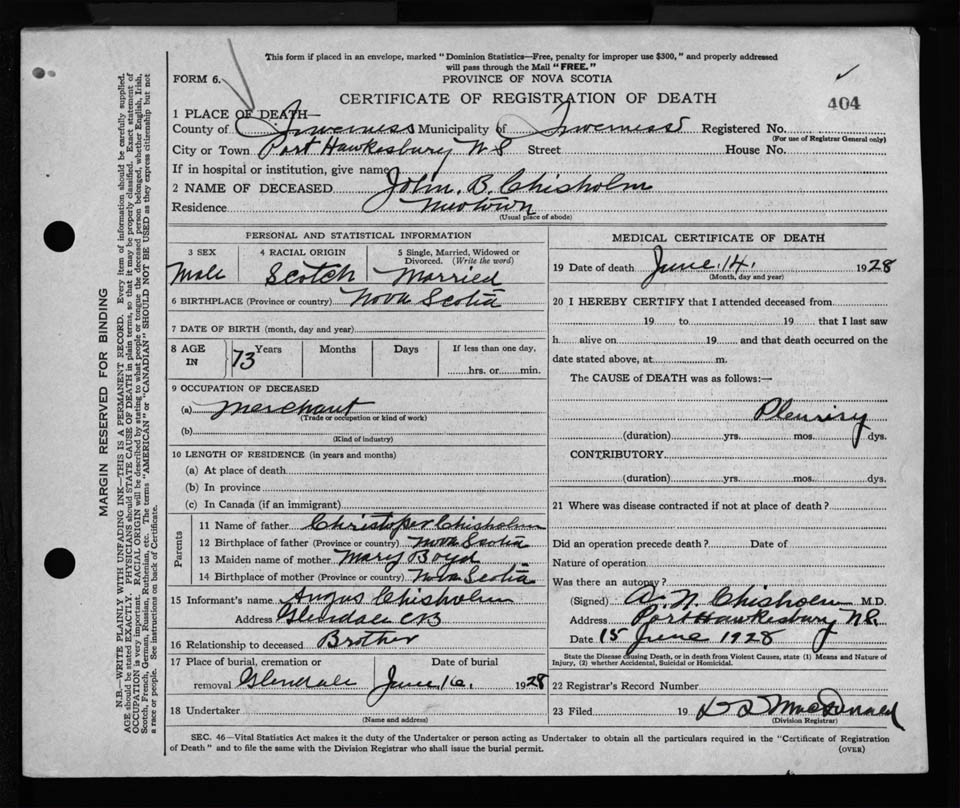 This form if placed in an envelope, marked "Dominion Statistics—Free, penalty for improper use $300," and properly addressed
will pass through the Mail "FREE."
FORM 6.
PROVINCE OF NOVA SCOTIA
CERTIFICATE OF REGISTRATION OF DEATH
404
1 PLACE OF DEATH—
County of Inverness Municipality of Inverness Registered No.
(For use of Registrar General only)
City or Town Port Hawkesbury N S Street House No.
If in hospital or institution, give name
2 NAME OF DECEASED John. B. Chisholm
Residence Newtown
(Usual place of abode)
PERSONAL AND STATISTICAL INFORMATION
3 SEX 4 RACIAL ORIGIN 5 Single, Married, Widowed or Divorced. (Write the word)
Male Scotch Married
6 BIRTHPLACE (Province or country) Nova Scotia
7 DATE OF BIRTH (month, day and year)
8 AGE IN 73 Years Months Days If less than one day, hrs. or min.
9 OCCUPATION OF DECEASED
(a) Merchant
(Trade or occupation or kind of work)
(b)
(Kind of industry)
10 LENGTH OF RESIDENCE (in years and months)
(a) At place of death
(b) In province
(c) In Canada (if an immigrant)
Parents
11 Name of father Christoper Chisholm
12 Birthplace of father (Province or country) Nova Scotia
13 Maiden name of mother Mary Boyd
14 Birthplace of mother (Province or country) Nova Scotia
15 Informant's name Angus Chisholm
Address Glendale CB
16 Relationship to deceased Brother
17 Place of burial, cremation or removal Glendale Date of burial June 16, 1928
18 Undertaker
(Name and address)
MEDICAL CERTIFICATE OF DEATH
19 Date of death June 14. 1928
(Month, day and year)
20 I HEREBY CERTIFY that I attended deceased from
19 to 19 that I last saw
h alive on 19 and that death occurred on the
date stated above, at m.
The CAUSE of DEATH was as follows:—
Pleurisy
(duration) yrs. mos. dys.
CONTRIBUTORY
(duration) yrs. mos. dys.
21 Where was disease contracted if not at place of death?
Did an operation precede death? Date of
Nature of operation
Was there an autopsy?
(Signed) A. N. Chisholm M.D.
Address Port Hawkesbury
Date 15 June 1928
State the Disease causing Death, or in death from Violent Causes, state (1) Means and Nature of
Injury, (2) whether Accidental, Suicidal or Homicidal.
22 Registrar's Record Number
23 Filed 19 MacDonald
(Division Registrar)
SEC. 46—Vital Statistics Act makes it the duty of the Undertaker or person acting as Undertaker to obtain all the particulars required in the "Certificate of Registration
of Death" and to file the same with the Division Registrar who shall issue the burial permit.
(OVER)
MARGIN RESERVED FOR BINDING
N.B.—WRITE PLAINLY WITH UNFADING INK—THIS IS A PERMANENT RECORD. Every item of information should be carefully supplied.
AGE should be stated EXACTLY. PHYSICIANS should STATE CAUSE OF DEATH in plain terms, so that it may be properly classified. Exact statement of
OCCUPATION is very important. RACIAL ORIGIN will be described by stating to what people or tongue the deceased person belonged, whether English, Irish,
Scotch, French, German, Russian, Ruthenian, etc. The terms "AMERICAN" or "CANADIAN" SHOULD NOT BE USED as they express citizenship but not
a race or people. See instructions on back of Certificate.